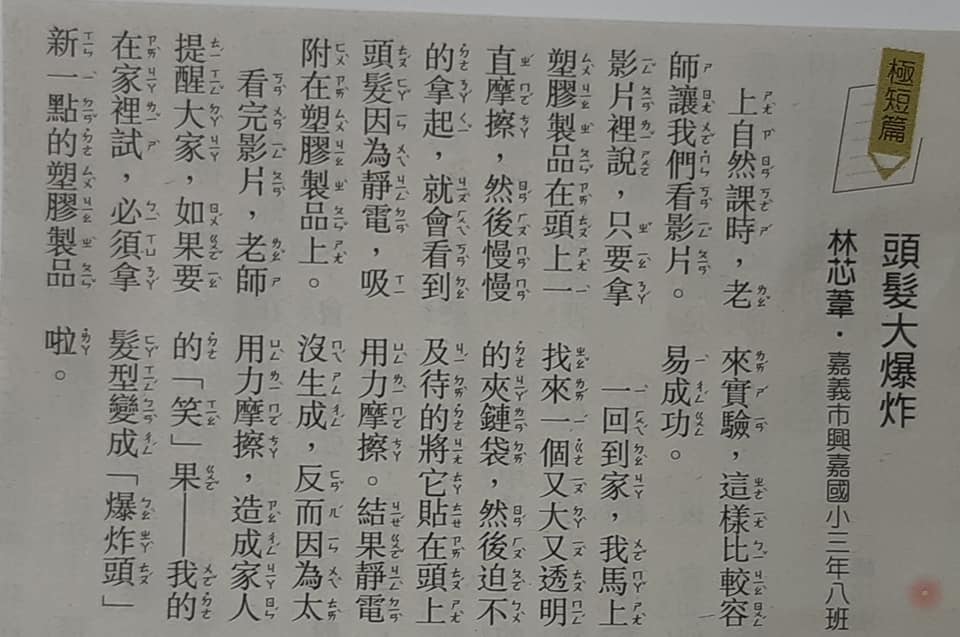 極短篇
頭髮大爆炸
林芯葦・嘉義市興嘉國小三年八班
上自然課時，老
師讓我們看影片。
影片裡說，只要拿
塑膠製品在頭上一
直摩擦，然後慢慢
的拿起，就會看到
頭髮因為靜電，吸
附在塑膠製品上。
看完影片，老師
提醒大家，如果要
在家裡試，必須拿
新一點的塑膠製品
來實驗，這樣比較容
易成功。
一回到家，我馬上
找來一個又大又透明
的夾鏈袋，然後迫不
及待的將它貼在頭上
用力摩擦。結果靜電
沒生成，反而因為太
用力摩擦，造成家人
的「笑」果——我的
髮型變成「爆炸頭」
啦。